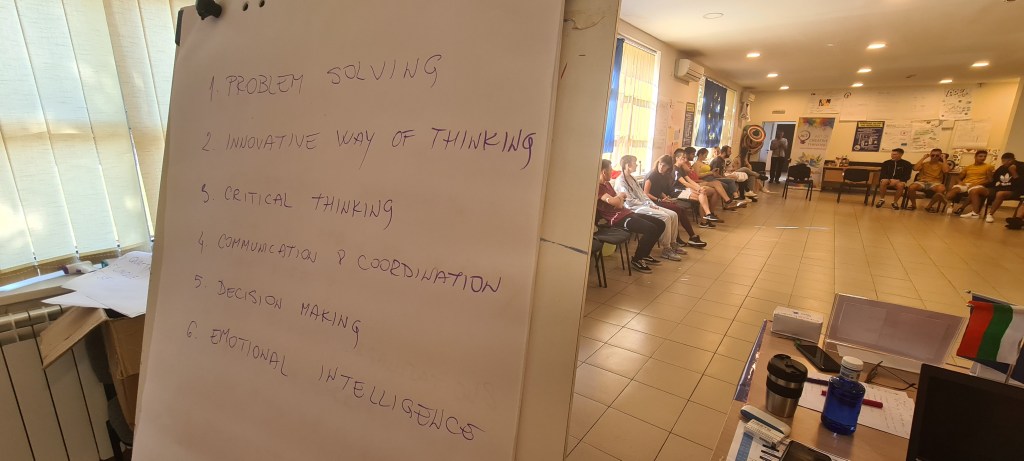 1. PROBLEM SOLVING
2. INNOVATIVE WAY OF THINKING
3. CRITICAL THINKING
4. COMMUNICATION & COORDINATION
5. DECISION MAKING
6. EMOTIONAL INTELLIGENCE